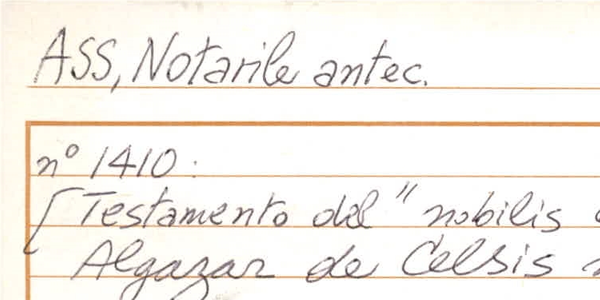 ASS, Notarile antec.
n° 1410.
[Testamento del "nobilis
Algazar de Celsis